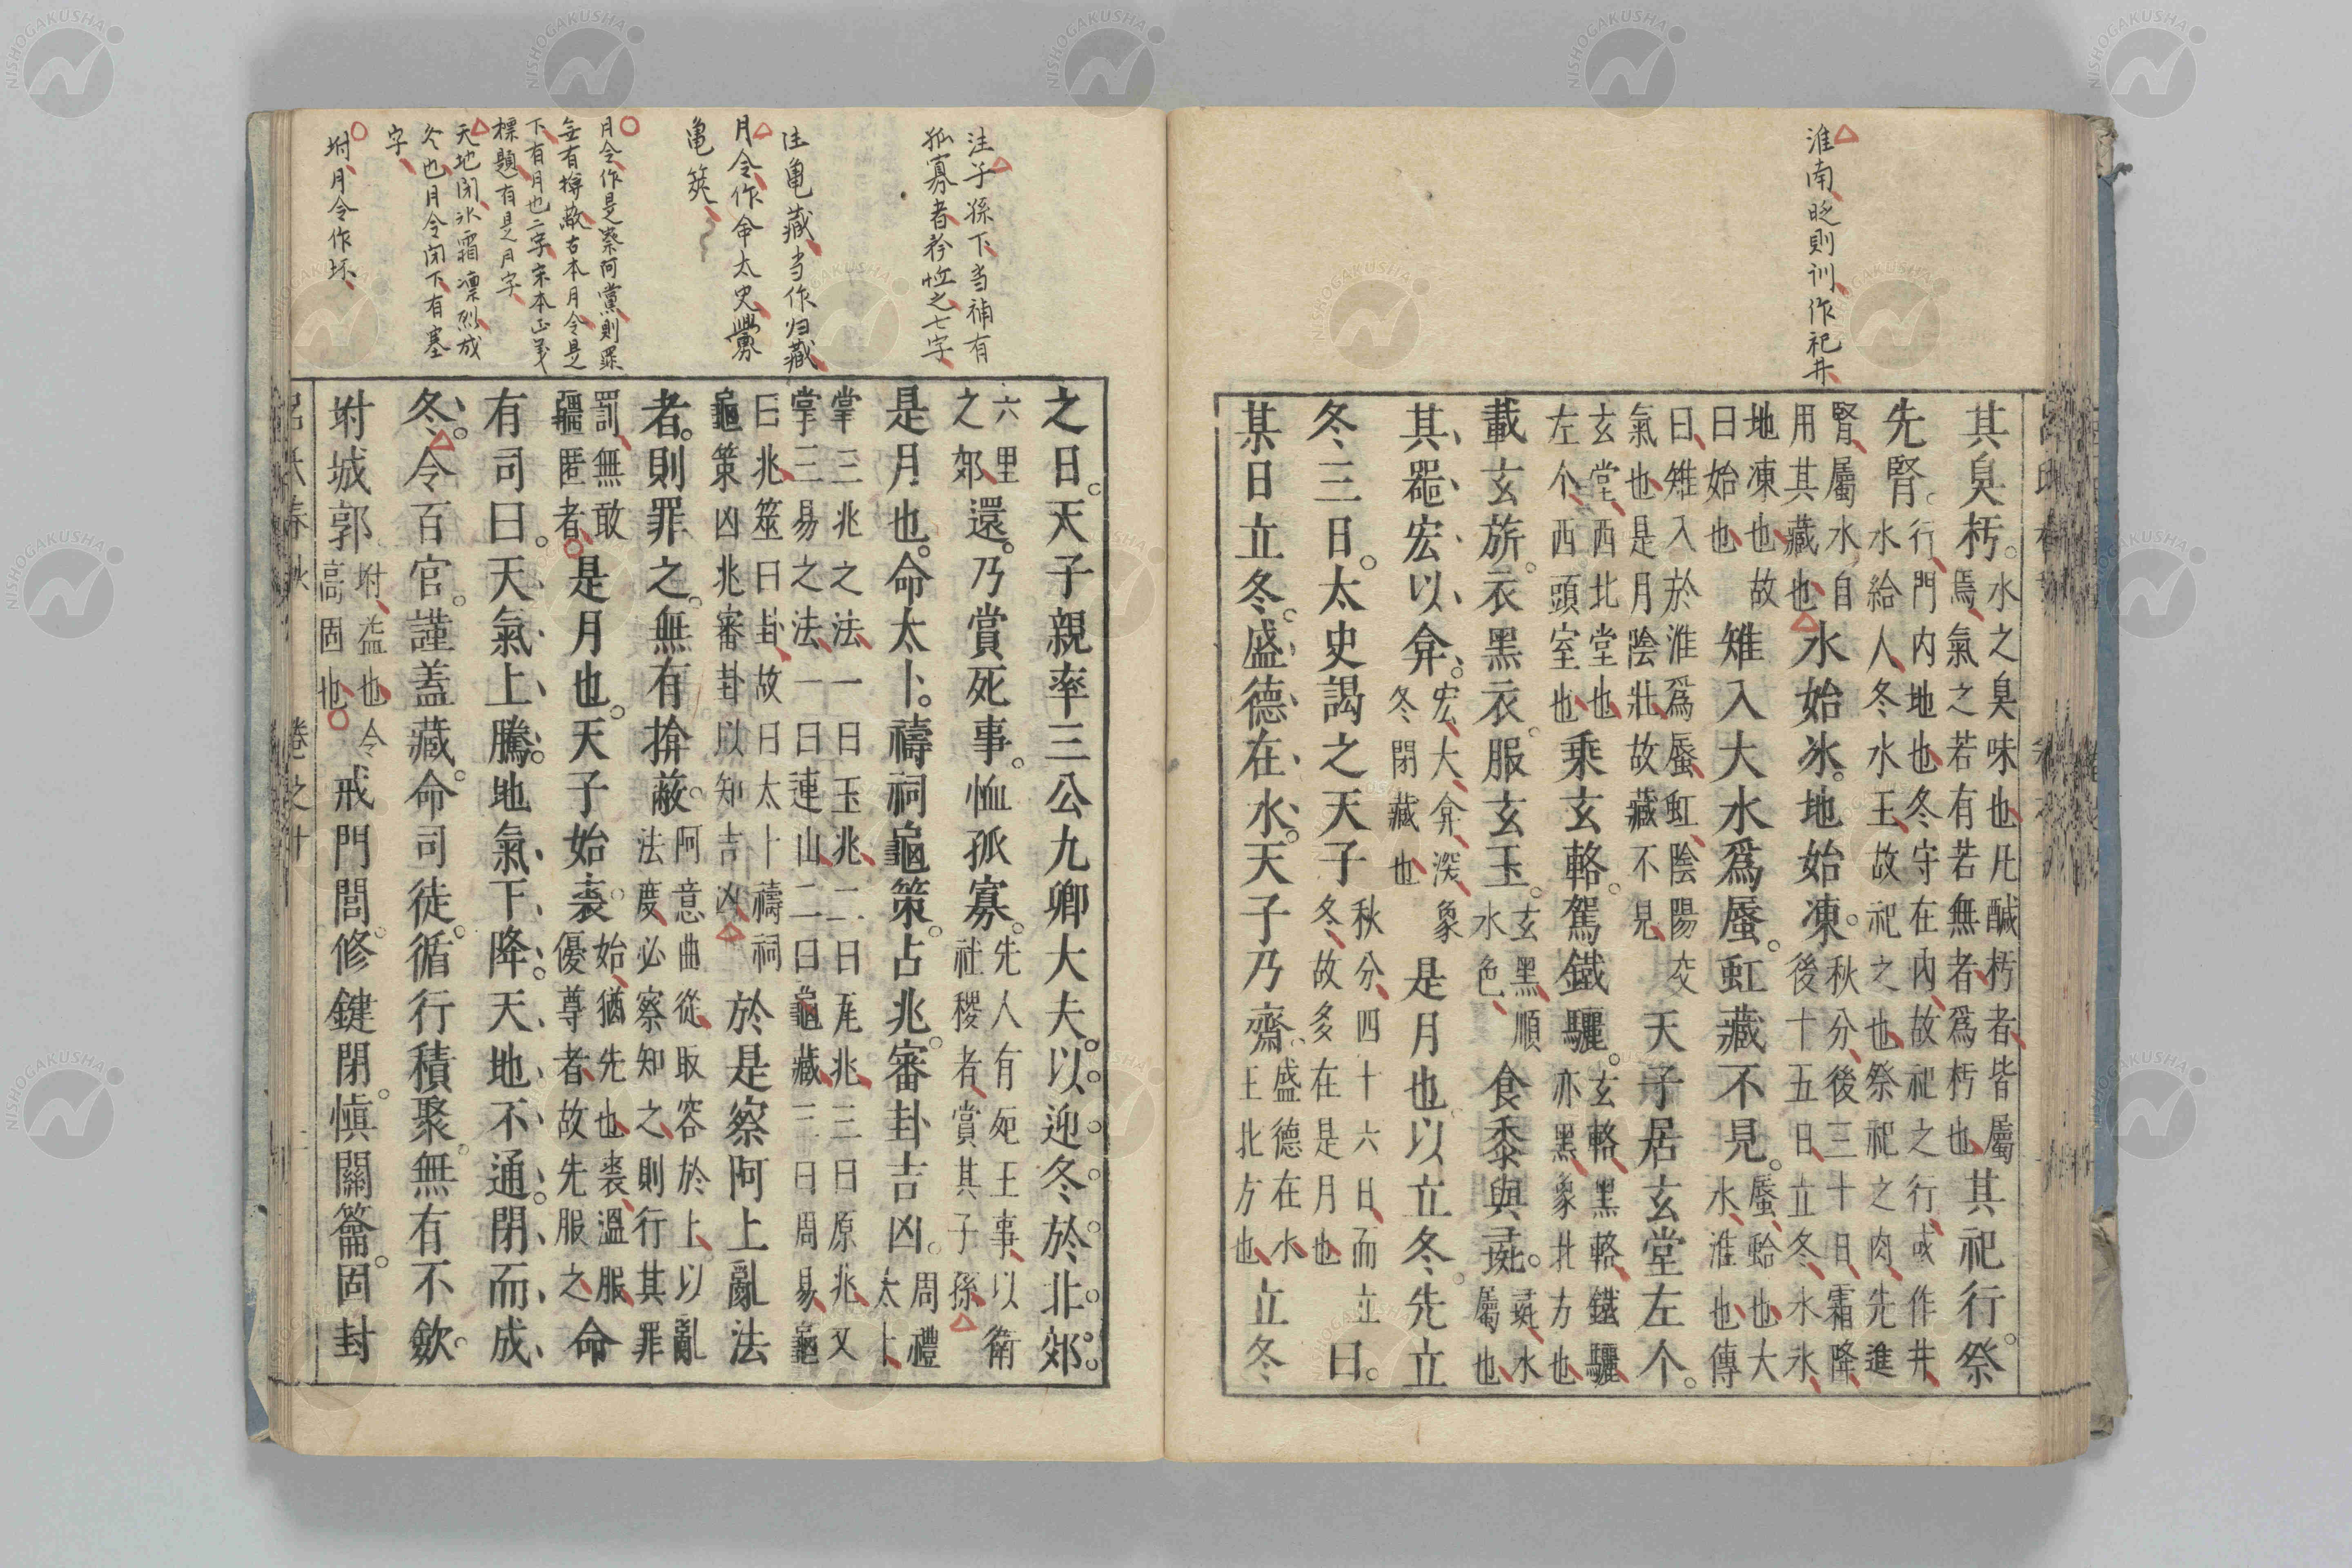 淮南時則訓作祀井
其臭朽水之臭味也凡鹹朽者皆屬焉氣之若有若無者爲朽也其祀行祭
先腎行門内地也冬守在内故祀之行或作井水給人冬水王故祀之也祭祀之肉先進
腎屬水自用其藏也水始冰地始凍秋分後三十日霜降後十五日立冬水冰
地凍也故曰始也雉入大水爲蜃虹藏不見蜃蛤也大水淮也傳
曰雉入於淮爲蜃虹陰陽交氣也是月陰壯故藏不見天子居玄堂左个
玄堂西北堂也左个西頭室也乗玄輅駕鐵驪玄輅黑輅鐵驪亦黑象北方也
載玄旂衣黑衣服玄玉玄黑順水色食黍與彘彘水屬也
其噐宏以弇宏大弇深象冬閉藏也是月也以立冬先立
冬三日太史謁之天子秋分四十六日而立冬故多在是月也曰
某日立冬盛德在水天子乃齋盛德在水王北方也立冬
注子孫下当補有
狐寡者矜恤之七字
注亀藏当作归藏
月令作命太史釁
亀筴
月令作是察阿黨則罪
無有掩蔽古本月令是
下有月也二字宋本正義
標題有是月字
天地閉氷霜凛烈成
冬也月令閉下有塞
字
坿月令作坏
之日天子親率三公九卿大夫以迎冬於北郊
六里之郊還乃賞死事恤孤寡先人有死王事以衛社稷者賞其子孫
是月也命太卜禱祠龜策占兆審卦吉凶周禮太卜
掌三兆之法一曰玉兆二曰瓦兆三曰原兆又掌三易之法一曰連山二曰龜藏三曰周易龜
曰兆筮曰卦故曰太卜禱祠龜策凶兆審卦以知吉凶於是察阿上亂法
者則罪之無有揜蔽阿意曲從取容於上以亂法度必察知之則行其罪
罰無敢彊匿者是月也天子始裘始猶先也裘溫服優尊者故先服之命
有司曰天氣上騰地氣下降天地不通閉而成
冬令百官謹蓋藏命司徒循行積聚無有不歛
坿城郭坿益也令高固也戒門閭修鍵閉愼關籥固封
呂氏春秋 卷之十